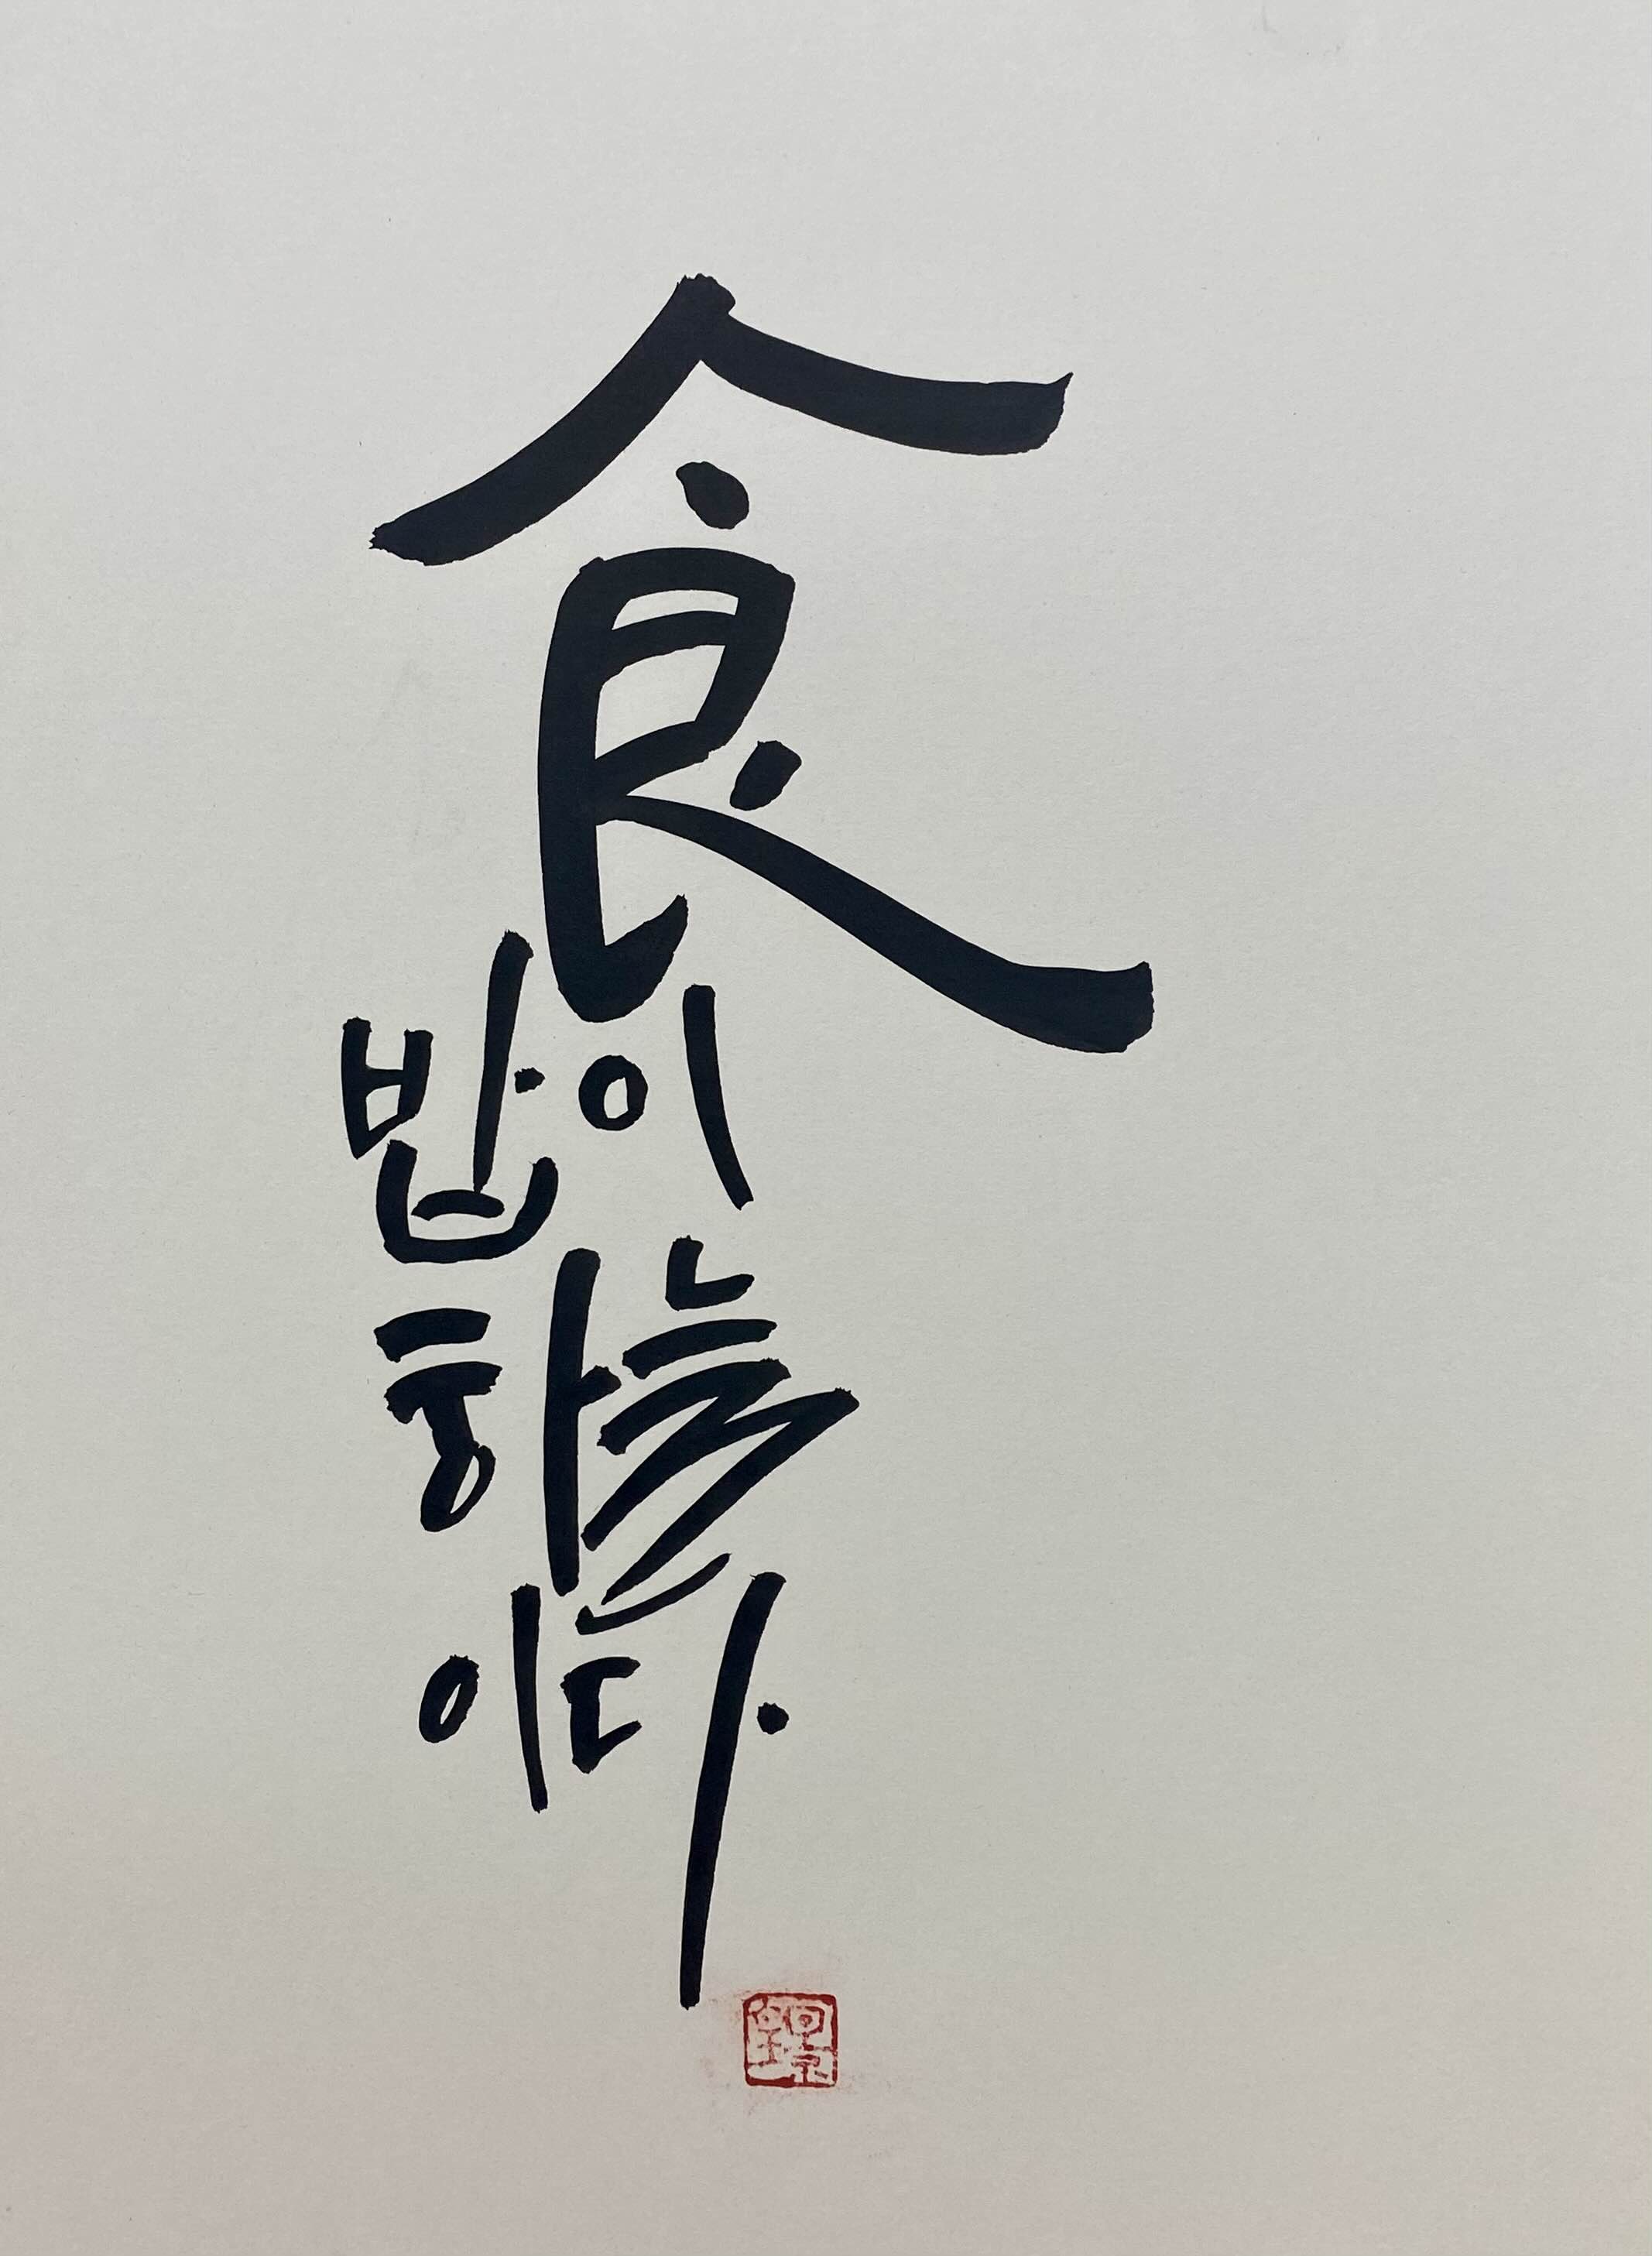 食
밥이
하늘
이다